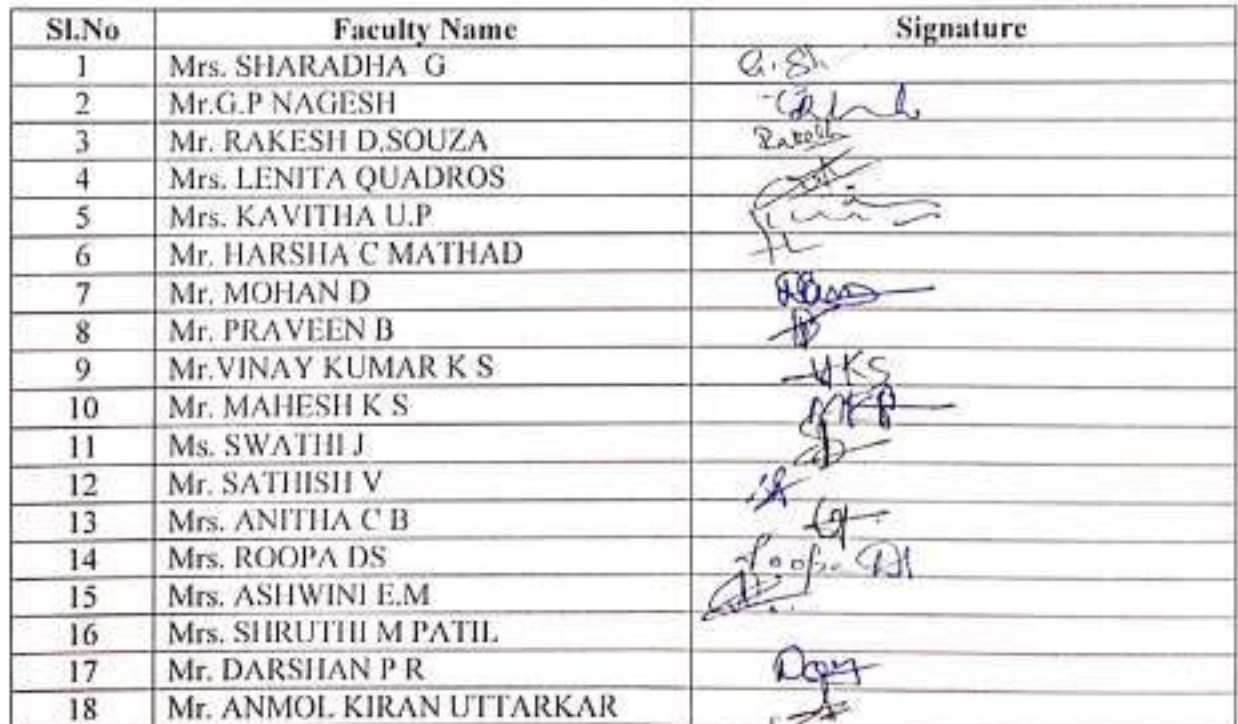 Sl.No Faculty Name Signature
1 Mrs. SHARADHA G G.Sh
2 Mr.G.P NAGESH
3 Mr. RAKESH D.SOUZA Rakesh
4 Mrs. LENITA QUADROS
5 Mrs. KAVITHA U.P
6 Mr. HARSHA C MATHAD
7 Mr. MOHAN D
8 Mr. PRAVEEN B
9 Mr.VINAY KUMAR K S VKS
10 Mr. MAHESH K S
11 Ms. SWATHI J
12 Mr. SATHISH V
13 Mrs. ANITHA C B
14 Mrs. ROOPA DS Roopa DS
15 Mrs. ASHWINI E.M
16 Mrs. SHRUTHI M PATIL
17 Mr. DARSHAN P R
18 Mr. ANMOL KIRAN UTTARKAR